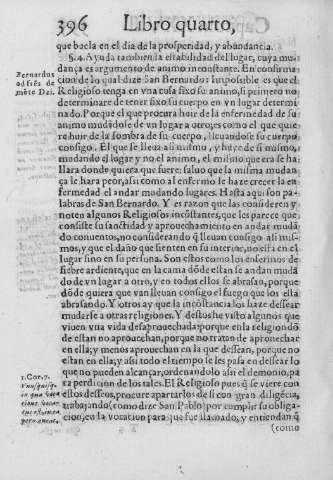 396 Libro quarto,
que buela en el dia de la prosperidad, y abundancia.
§.4. Ayuda tambien la estabilidad del lugar, cuya mu-
dança es argumento de animo inconstante. En confirma
cion de lo qual dize San Bernardo: Impossible es que el
Religioso tenga en vna cosa fixo su animo, si primero no
determinare de tener fixo su cuerpo en vn lugar determi
nado. Porque el que procura huir de la enfermedad de su
animo mudãdose de vn lugar a otro, es como el que quie
re huir de la sombra de su cuerpo, lleuandose su cuerpo
consigo. El que se lleua asi mismo, y huye de si mismo,
mudando el lugar y no el animo, el mismo que era se ha
llara donde quiera que fuere: saluo que la misma mudan
ça le hara peor, assi como al enfermo le haze crecer la en
fermedad el andar mudando lugares. Hasta aqui son pa
labras de San Bernardo. Y es razon que las consideren y
noten algunos Religiosos incõstantes, que les parece que
consiste su sanctidad y aprouechamiento en andar mudã
do conuentos, no considerando q̃ lleuan consigo asi mis-
mos, y que el daño que sienten en su interior, no està en el
lugar sino en su persona. Son estos como los enfermos de
fiebre ardiente, que en la cama dõde estan se andan mudã
do de vn lugar a otro, y en todos ellos se abrasan, porque
dõde quiera que van lleuan consigo el fuego que los està
abrasando. Y otros ay que la incõstancia los haze dessear
mudarse a otras religiones. Y destos he visto algunos que
viuen vna vida desaprouechada: porque en la religion dõ
de estan no aprouechan, porque no tratan de aprouechar
en ella; y menos aprouechan en la que dessean, porque no
estan en ella; y assi todo el tiempo se les passa en dessear lo
que no pueden alcançar, ordenandolo assi el demonio, pa
ra perdicion de los tales. El Religioso pues q̃ se viere con
estos desseos, procure apartarlos de si con gran diligẽcia,
trabajando (como dize San Pablo) por cumplir su obliga-
cion, en la vocation para que fue llamado, y entiendan q̃
(como
Bernardus
ad frẽs de
mõte Dei.
1. Cor. 7.
Vnusquisq;
in qua voca
tione vocat'
permaneat.